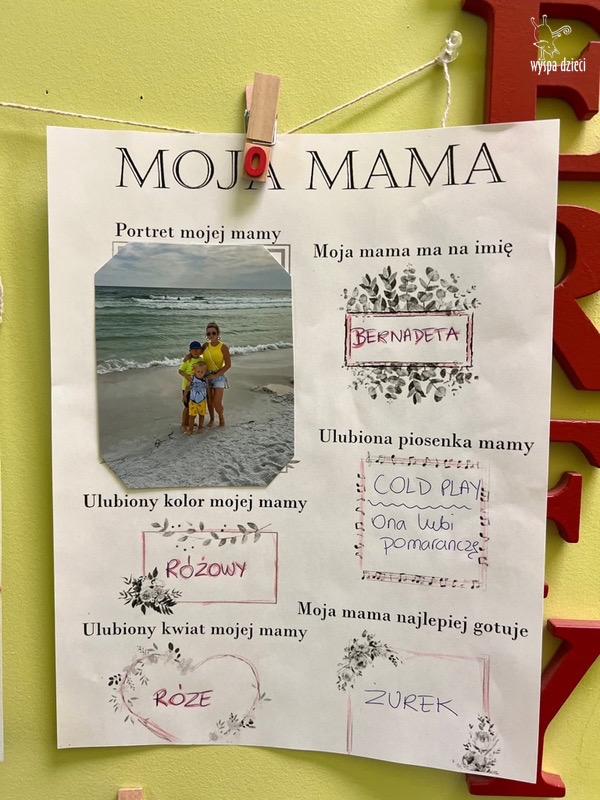 wyspa dzieci
MOJA MAMA
Portret mojej mamy
Moja mama ma na imię
BERNADETA
Ulubiona piosenka mamy
COLD PLAY
Ona lubi
pomarańczę
Ulubiony kolor mojej mamy
RÓŻOWY
Ulubiony kwiat mojej mamy
RÓŻE
Moja mama najlepiej gotuje
ZUREK